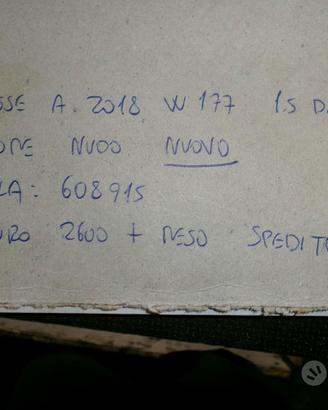 SSE A. 2018 W 177 1.5 D.
ONE NUDO NUOVO
LA: 608915
URO 2600 + RESO SPEDITO